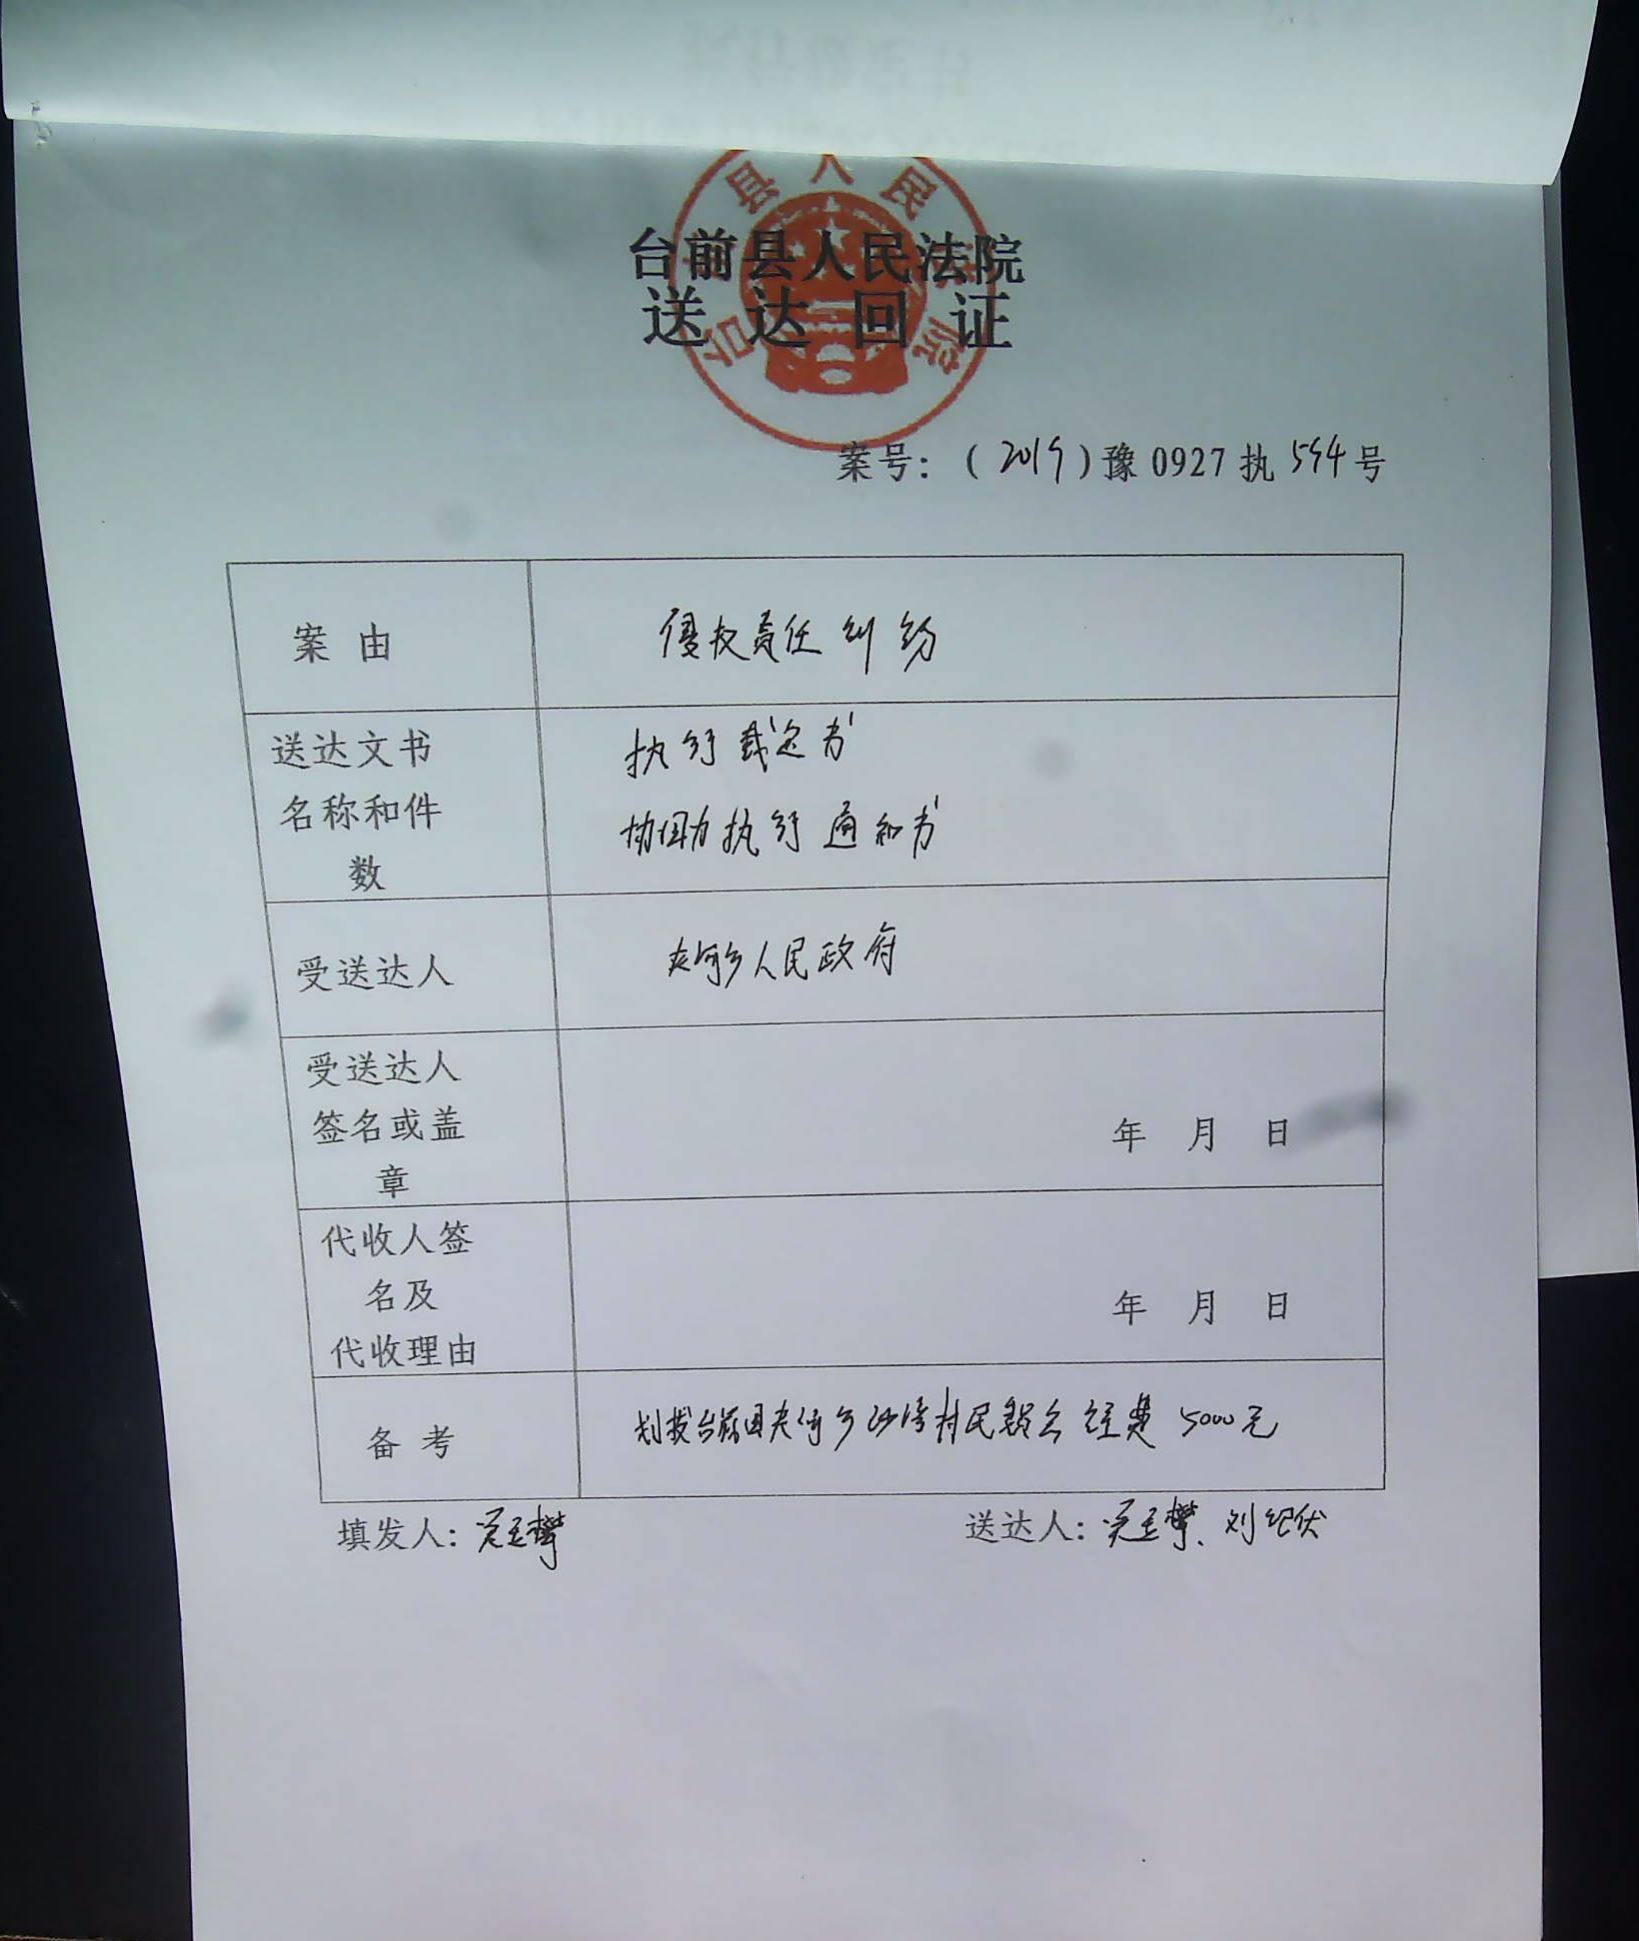 县人民
台前县人民法院
送达回证
案号：（2019）豫0927执594号
案由
侵权责任纠纷
送达文书
名称和件
数
执行裁定书
协助执行通知书
受送达人
夹河乡人民政府
受送达人
签名或盖
章
年 月 日
代收人签
名及
代收理由
年 月 日
备考
划拨台前县夹河乡沙湾村民委会经费5000元
填发人：
送达人： 刘